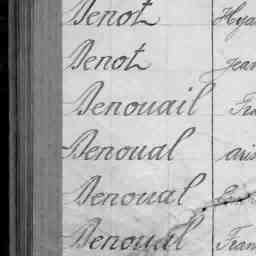 Denot Hya
Denot Jean
Denouail Fra
Denoual aris
Denoual
Denoual Fran